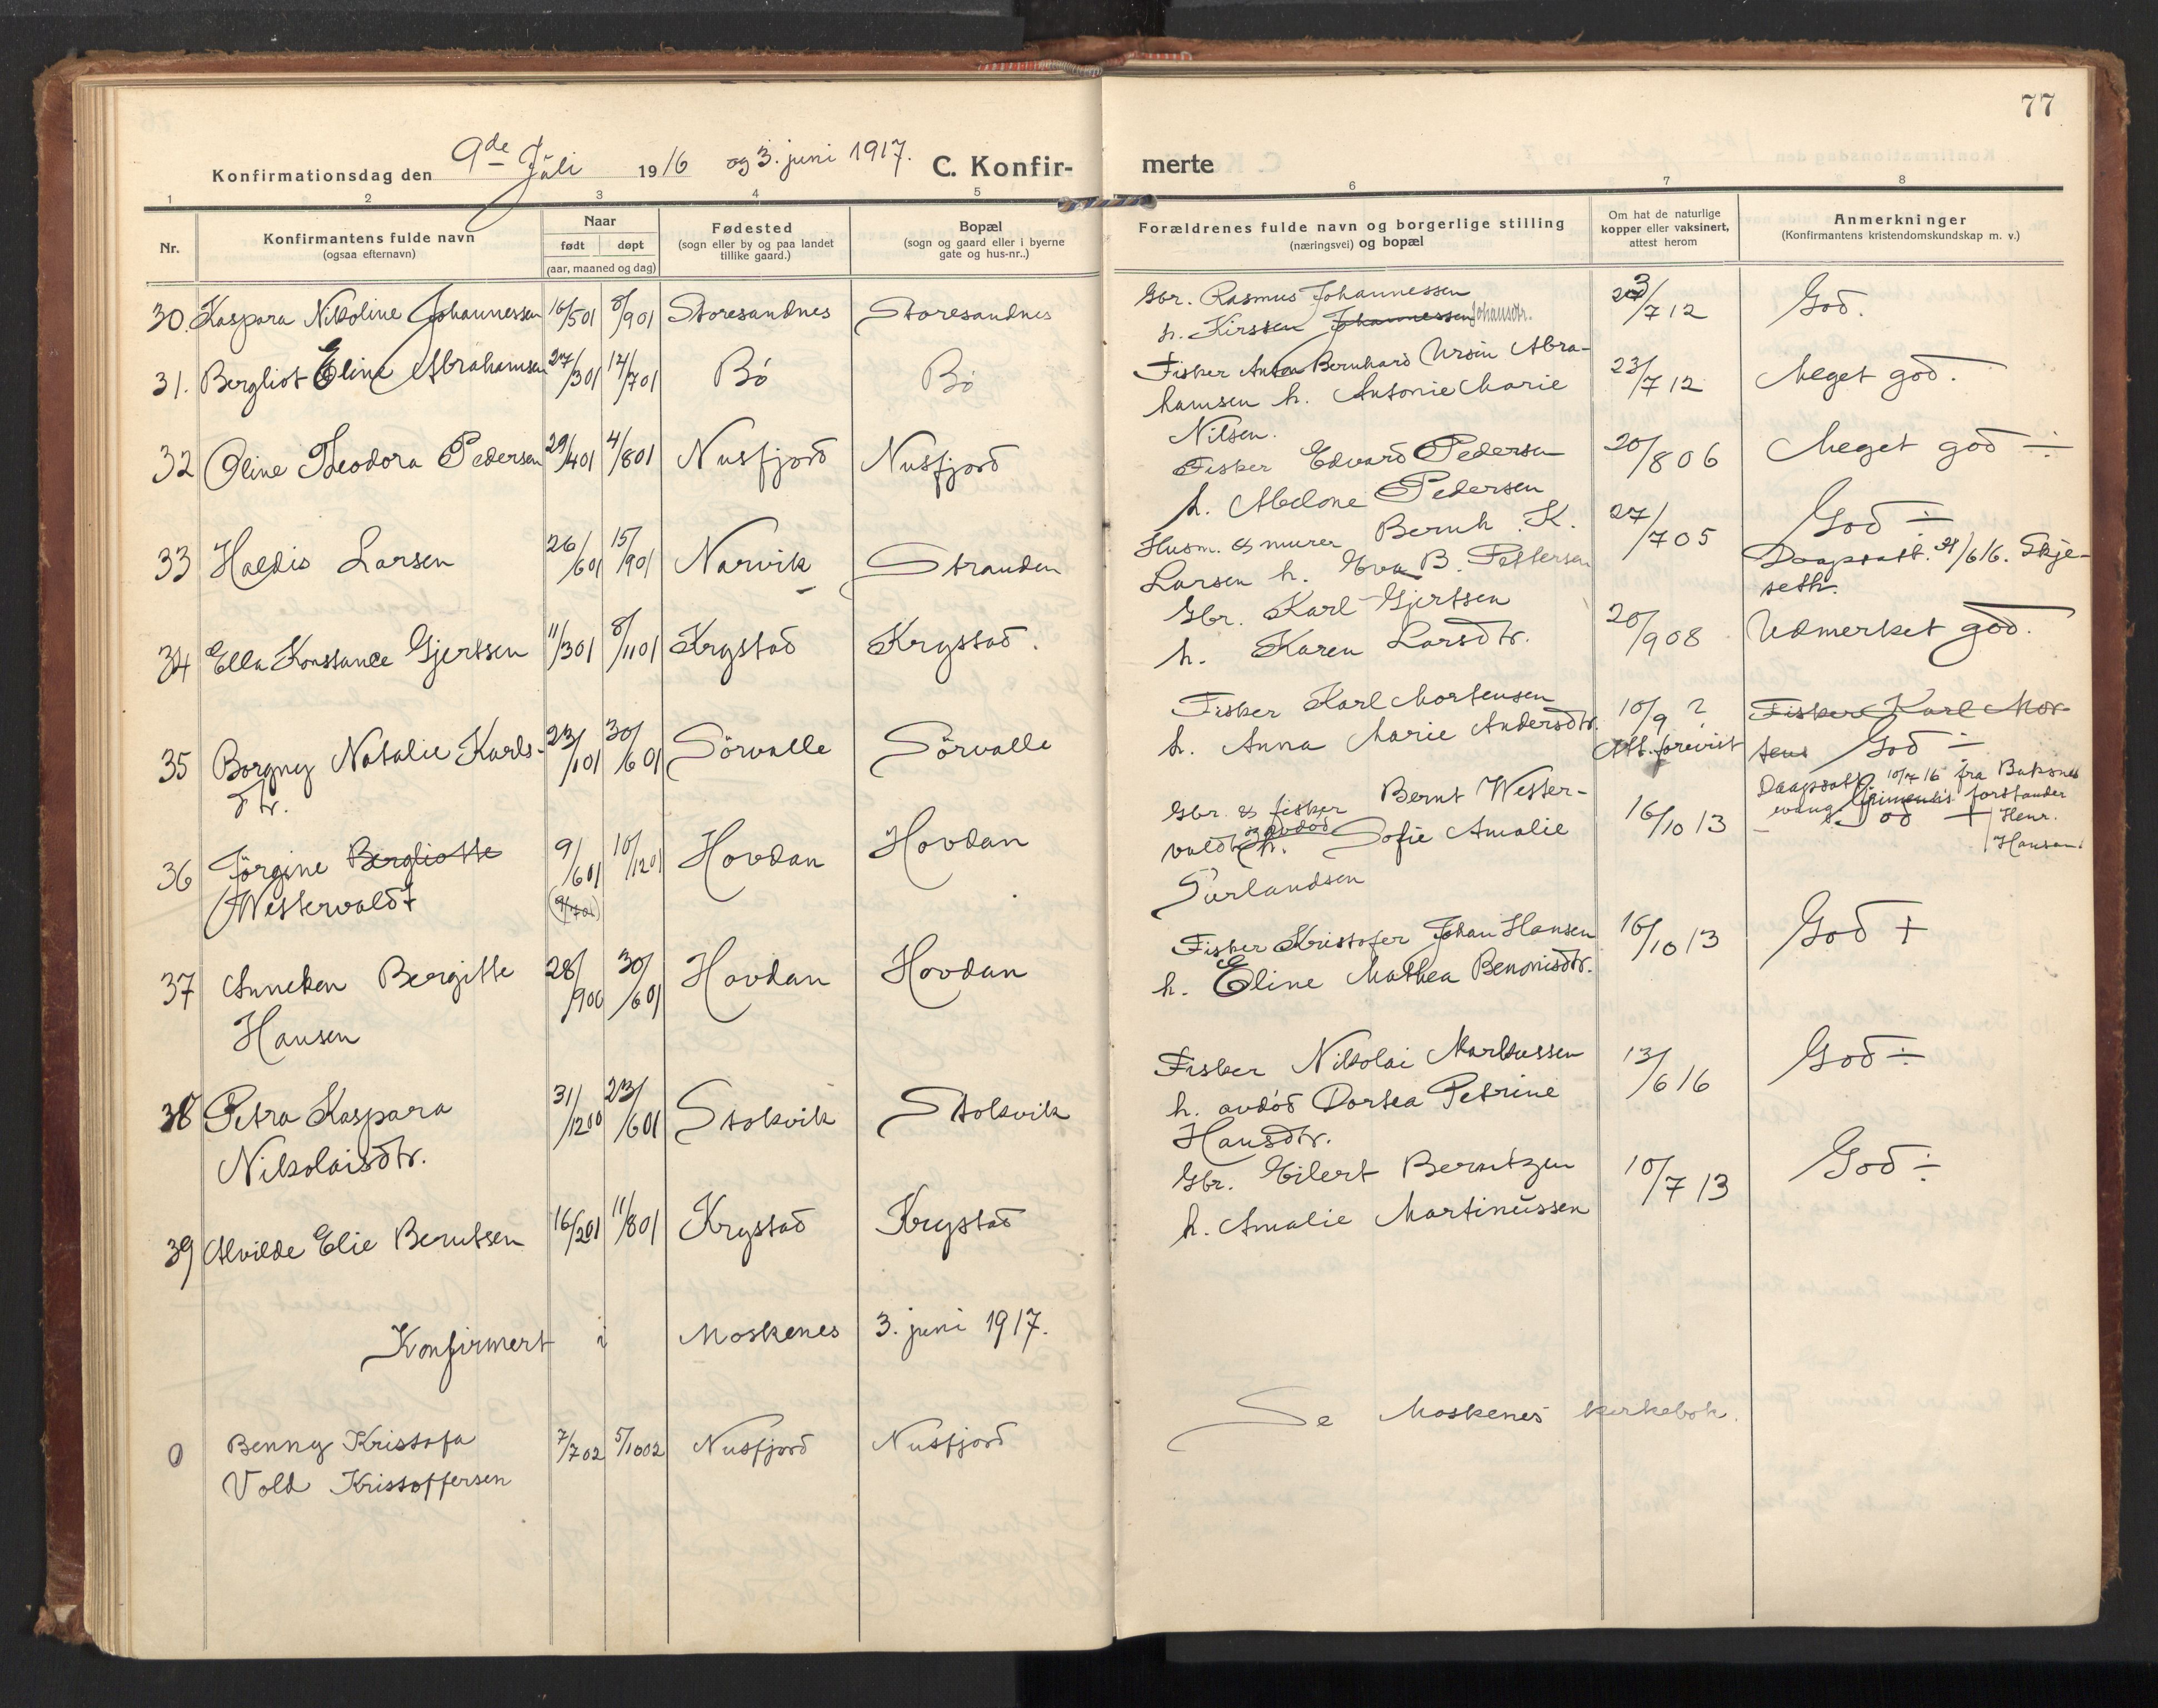 77
Konfirmationsdag den 9de Juli 1916 og 3. juni 1917. C. Konfir-
merte
1 2 3 4 5
6 7 8
Nr. Konfirmantens fulde navn (ogsaa efternavn) Naar født døpt (aar, maaned og dag) Fødested (sogn eller by og paa landet tillike gaard.) Bopæl (sogn og gaard eller i byerne gate og hus-nr..)
Forældrenes fulde navn og borgerlige stilling (næringsvei) og bopæl Om hat de naturlige kopper eller vaksinert, attest herom Anmerkninger (Konfirmantens kristendomskundskap m. v.)
30. Kaspara Nikoline Johannessen 16/501 8/901 Storesandnes Storesandnes
Gbr. Rasmus Johannessen
h. Kirsten Johannessen Johansdtr.
23/712 God.
31. Bergliot Eline Abrahamsen 27/301 14/701 Bö Bö
Fisker Anton Bernhard Ursin Abra-
hamsen h. Antonie Marie
Nilsen.
23/712 Meget god.
32 Oline Theodora Pedersen 29/401 4/801 Nusfjord Nusfjord
Fisker Edvard Pedersen
h. Abelone Pedersen
20/806 Meget god ÷
33 Haldis Larsen 26/601 15/901 Narvik Stranden
Husm. & murer Bernh. K.
Larsen h. Eva B. Pettersen
27/705 God ÷
Daapsatt. 21/616. Skje-
seth.
34 Ella Konstance Gjertsen 11/301 8/1101 Krystad Krystad.
Gbr. Karl Gjertsen
h. Karen Larsdtr.
20/908 Udmerket god.
35 Borgny Natalie Karls-
dtr. 23/101 30/601 Sörvalle Sörvalle
Fisker Karl Mortensen
h. Anna Marie Andersdtr.
10/9 ?
Att. forevist
Fisker Karl Mor-
tens God ÷
36 Jörgine Bergliotte
Westervaldt 9/601 10/1201 Hovdan Hovdan
(9/701)
Gbr. & fisker Bernt Wester-
valdt & avdöd h. Sofie Amalie
Surlandsen
16/1013
Daapsatt. 10/716 fra Buksnes
evang. forstander
God + Henr.
Hansen.
37 Anneken Bergitte
Hansen 28/900 30/601 Hovdan Hovdan
Fisker Kristofer Johan Hansen
h. Eline Mathea Benonisdtr.
16/1013 God +
38 Petra Kaspara
Nikolaisdtr. 31/1200 23/601 Stokvik Stokvik
Fisker Nikolai Markussen
h. avdöd Dortea Petrine
Hansdtr.
13/616 God ÷
39 Alvilde Elie Berntsen 16/201 11/801 Krystad Krystad
Gbr. Eilert Berntzen
h. Amalie Martinussen
10/713 God ÷
Konfirmert i Moskenes 3. juni 1917.
0 Benny Kristofa
Vold Kristoffersen 7/702 5/1002 Nusfjord Nusfjord
Se Moskenes kirkebok.